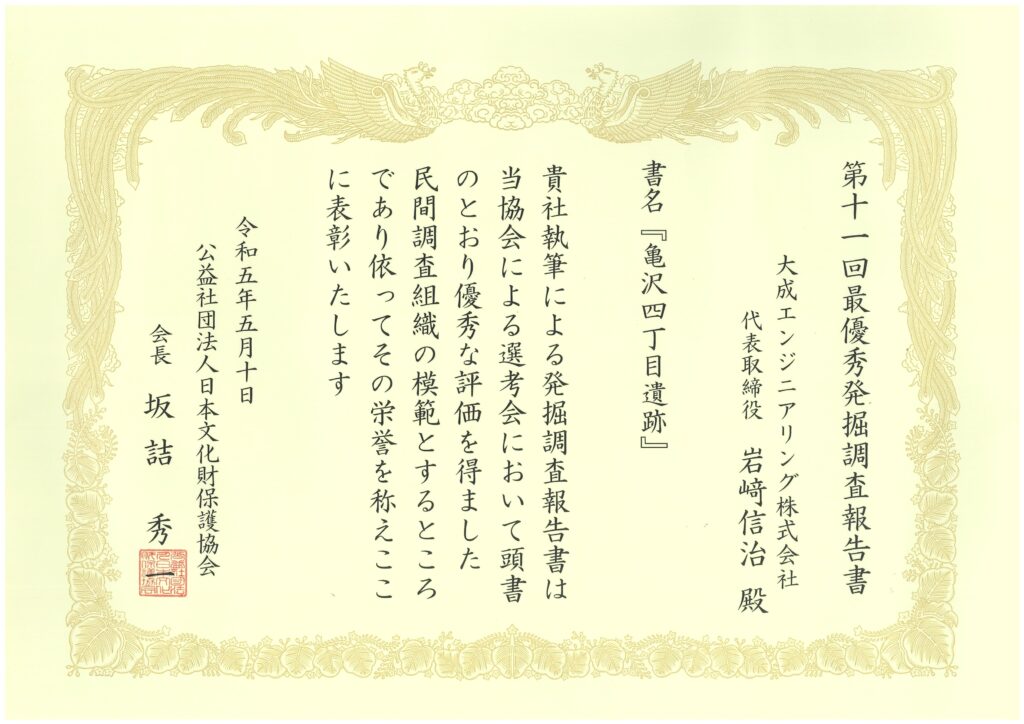 第十一回最優秀発掘調査報告書
大成エンジニアリング株式会社
代表取締役 岩﨑信治 殿
書名『亀沢四丁目遺跡』
貴社執筆による発掘調査報告書は
当協会による選考会において頭書
のとおり優秀な評価を得ました
民間調査組織の模範とするところ
であり依ってその栄誉を称えここ
に表彰いたします
令和五年五月十日
公益社団法人日本文化財保護協会
会長 坂詰 秀一